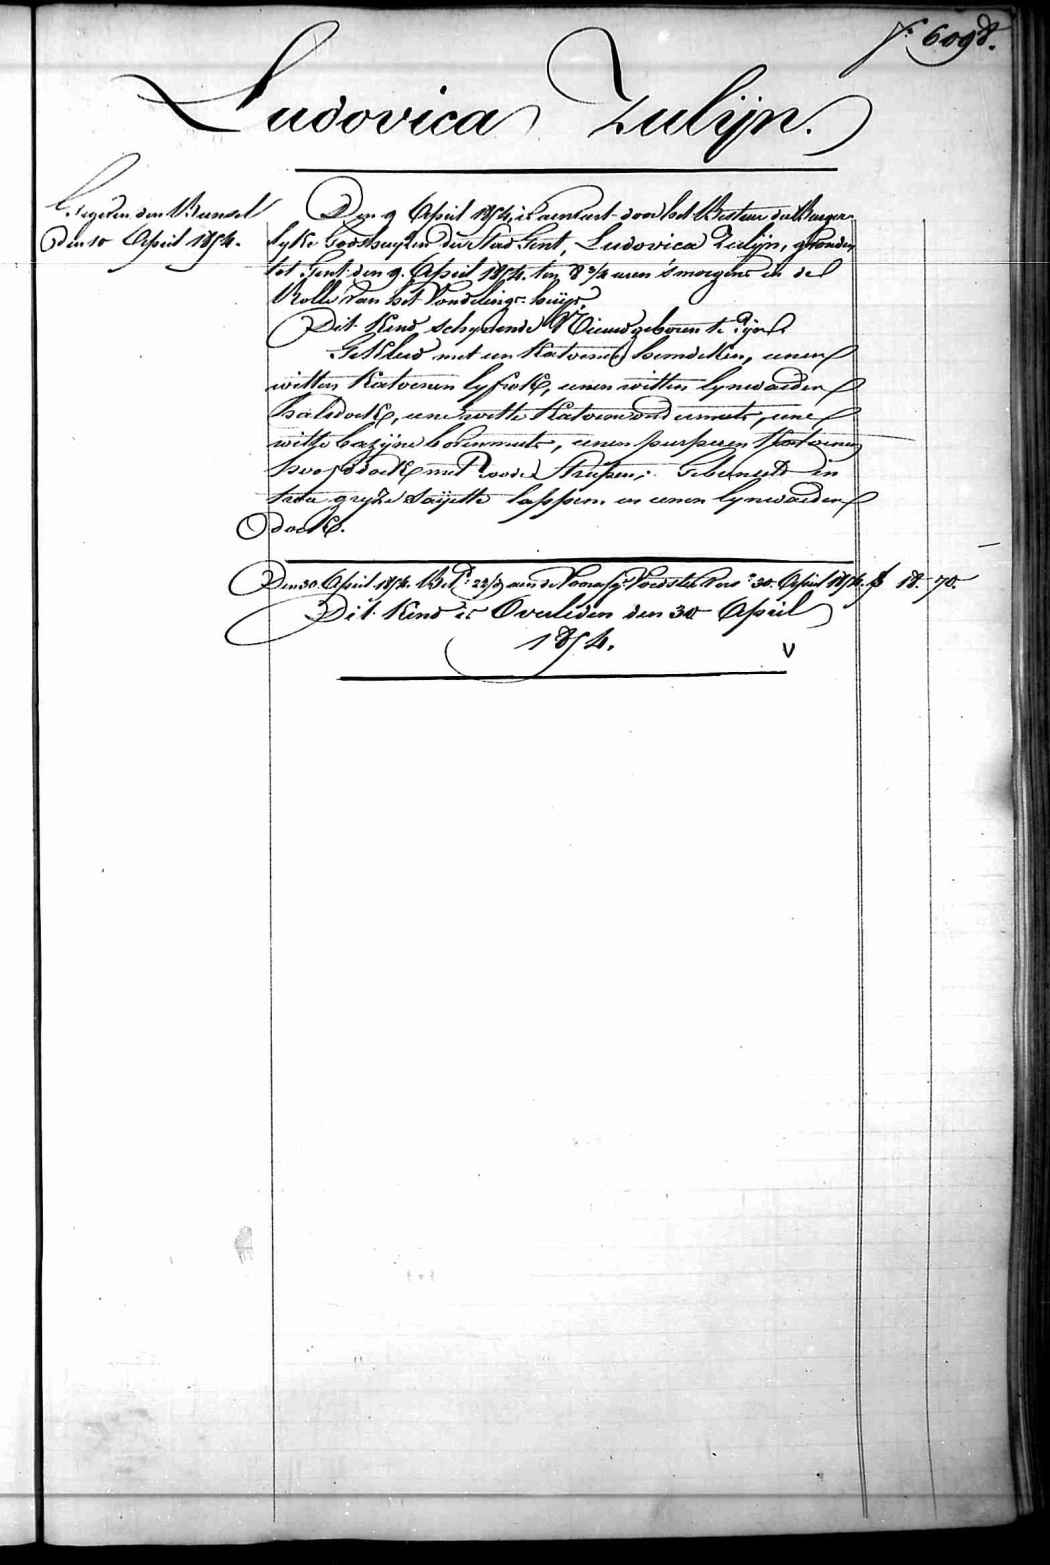 N.° 6098.
Ludovica Zulijn.
den Bundel
den 10 April 1854.
Den 9 April 1854, is aenveert door het Bestuer der Burger-
lyke Godshuyzen der Stad Gent, Ludovica Zulijn, gevonden
tot Gent den 9. April 1854. ten 8 3/4 uren 's morgens in de
Rolle van het Vondelings-huijs.
Dit Kind schynende Nieuwgeboren te zyn.
Gekleed met een Katoenen hemdeken, eenen
witten Katoenen lyfrok, eenen witten lynwaeden
halsdoek, eene witte Katoene ondermuts, eene
witte bazijne bovenmuts, eenen purperen Katoenen
hoofddoek met roode Streepen; Gebunseld in
twee gryze Saijette lappen en eenen lynwaeden
doek.
Den 30. April 1854. Bet.d aen de Voedster 30. April 1854. f 18. 70.
Dit Kind is Overleden den 30 April
1854.
V